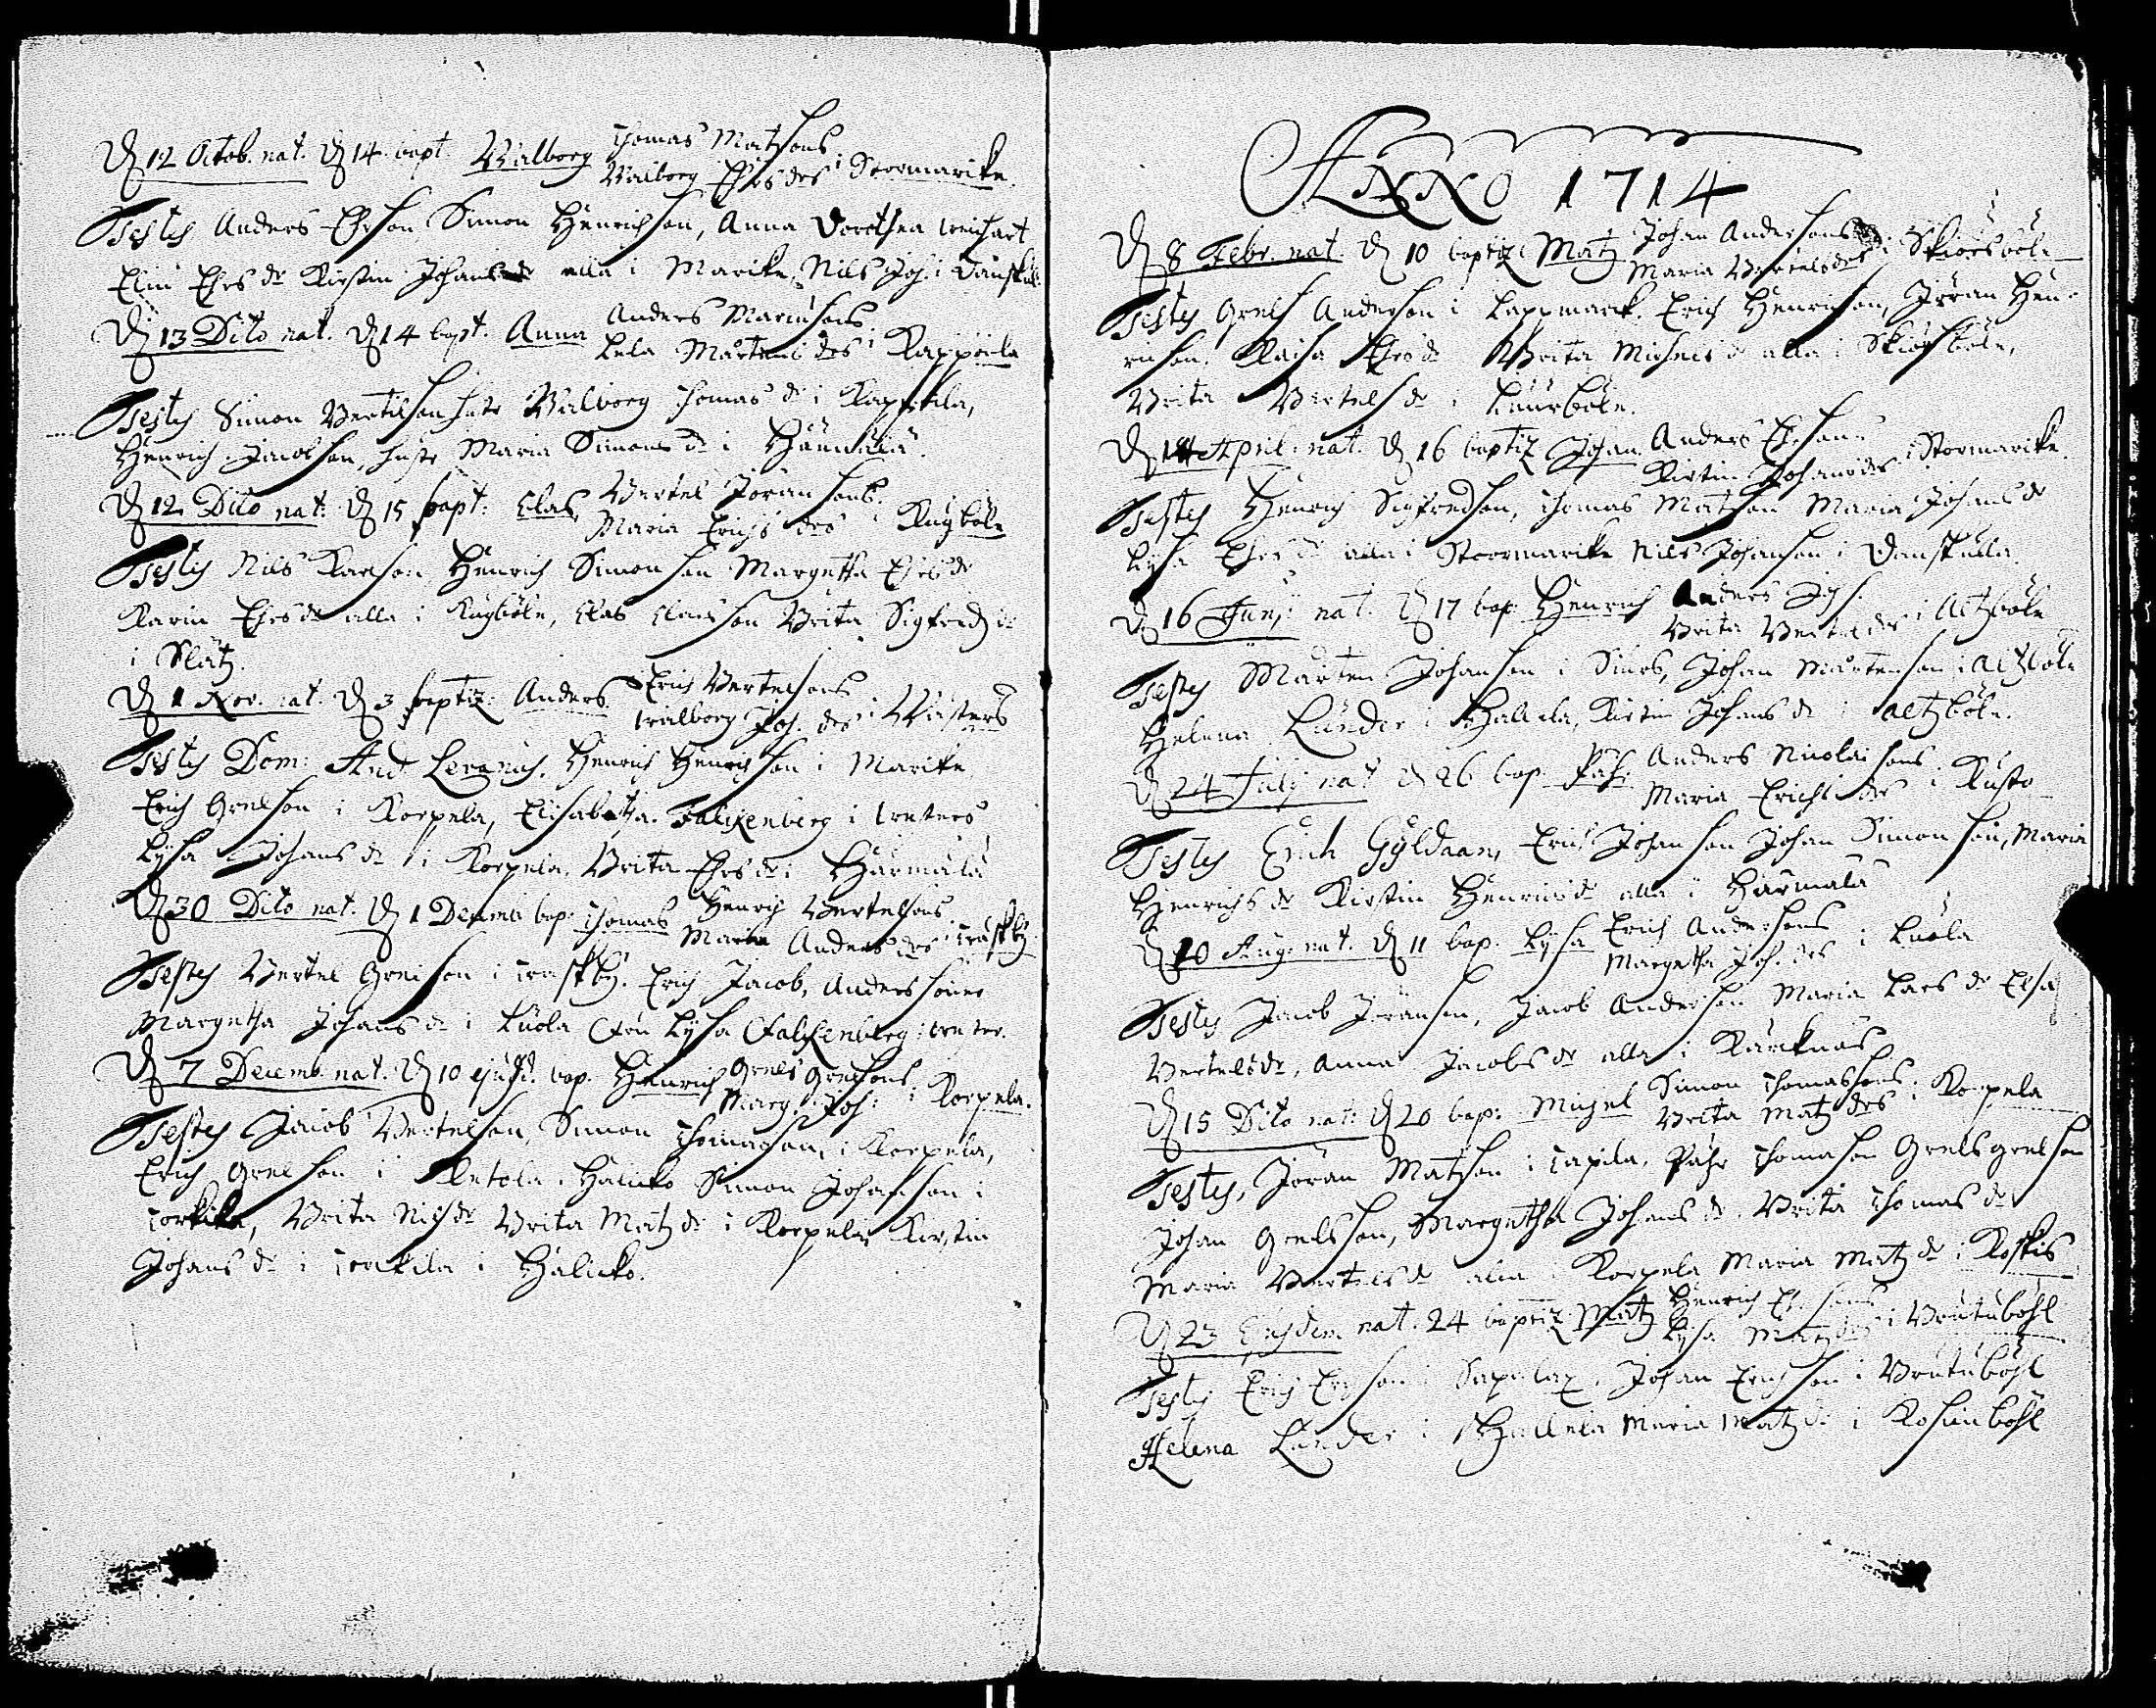 D 12 Octob. nat. D 14 bapt. Walborg Thomas Matzsons
Walborg Ehrsdes i Stormarike
Testes Anders Ehrson, Simon Henrichson, Anna Dorothea
Elin Ehrs dr Kirstin Johans dr alla i Marike, Nils Joh. i Danskulla
D 13 Dito nat. D 14 bapt. Anna Anders Mårtensons
Lela Mårtens des i Kappeila
Testes Simon Bertilson, Walborg Thomas dr i Kappeila,
Henrich Jacobson, Maria Simons dr i Härmälä.
D 12 Dito nat. D 15 bapt: Clas Bertel Jöransons
Maria Erichs des i Rugböle
Testes Nils Karlson Henrich Simonson Margetha Ehrs dr
Karin Ehrs dr alla i Rugböle, Clas Clauson Brita Sigfreds dr
i Slätz.
D 1 Nov. nat. D 3 baptiz: Anders Erich Bertelsons
Walborg Joh. des i Wästers
Testes Dom: And. Leræus, Henrich Henrichson i Marike
Erich Grelson i Korpela, Elisabetha Falkenberg i
Lysa Johans dr i Korpela, Brita Ehrs dr i Härmälä
D 30 Dito nat. D 1 Decemb bap: Thomas Henrich Bertelsons
Maria Anders des i Träskby
Testes Bertel Grelson i Träskby. Erich Jacob, Anderssöner
Margetha Johans dr i Luola Lysa Falkenberg
D 7 Decemb. nat. D 10 ejusd. bap. Henrich Grels Grelsons
Marg. Joh: i Korpela.
Testes Jacob Bertelson, Simon Thomasson, i Korpela,
Erich Grelson i Ketola i Haliko Simon Johanson i
Torkila, Brita Nils dr Brita Matz dr i Korpela Kirstin
Johans dr i Torkila i Haliko.
ANNO 1714
D 8 Febr. nat. D 10 baptiz Matz Johan Andersons
Maria Bertelsdes i Skiörsböle
Testes Grels Anderson i Lappmark. Erich Henrichson, Jöran Hen-
richson. Kaisa Ehrs dr Brita Michels dr alla i Skiörsböle,
Brita Bertels dr i
D 14 April. nat. D 16 baptiz Johan Anders Ehrsons
Kirstin Johans des i Stormarike
Testes Henrich Sigfredson, Thomas Matzson Maria Johans dr
Lysa Ehrs dr alla i Stormarike Nils Johanson i Danskulla
D 16 Junij nat. D 17 bap. Henrich Anders Joh.
Brita Bertels des i Aetzböle
Testes Mårten Johanson i Johan Mårtenson i Aetzböle
Helena Lunder i Hallela, Kirstin Johans dr i Aetzböle.
D 24 Julij nat D 26 bap. Påhr Anders Nicolaisons
Maria Erichs des i Rusto
Testes Erich Gyldaan, Erich Johanson Johan Simonson, Maria
Henrichs dr Kirstin Henrichs dr alla i Härmälä
D 10 Aug. nat. D 11 bap. Lysa Erich Andersons
Margetha Joh. des i Luola
Testes Jacob Jöranson, Jacob Anderson Maria Lars dr Elsa
Bertels dr, Anna Jacobs dr alla i Kärknäs
D 15 Dito nat: D 20 bap: Michel Simon Thomassons
Brita Matz des i Korpela
Testes, Jöran Matzson i Tapila. Påhr Thomason Grels Grelson
Johan Grelsson, Margetha Johans dr. Brita Thomas dr
Maria Bertels dr alla i Korpela Maria Matz dr i Koskis
D 23 Ejusdem nat. 24 baptiz: Matz Henrich Ehrsons
Lysa Matz des i Brutuböhl
Testes Erich Ersson i Sapalax. Johan Erichson i Brutuböhl
Helena Lunder i Hallela Maria Matz dr i Kohsinböhl